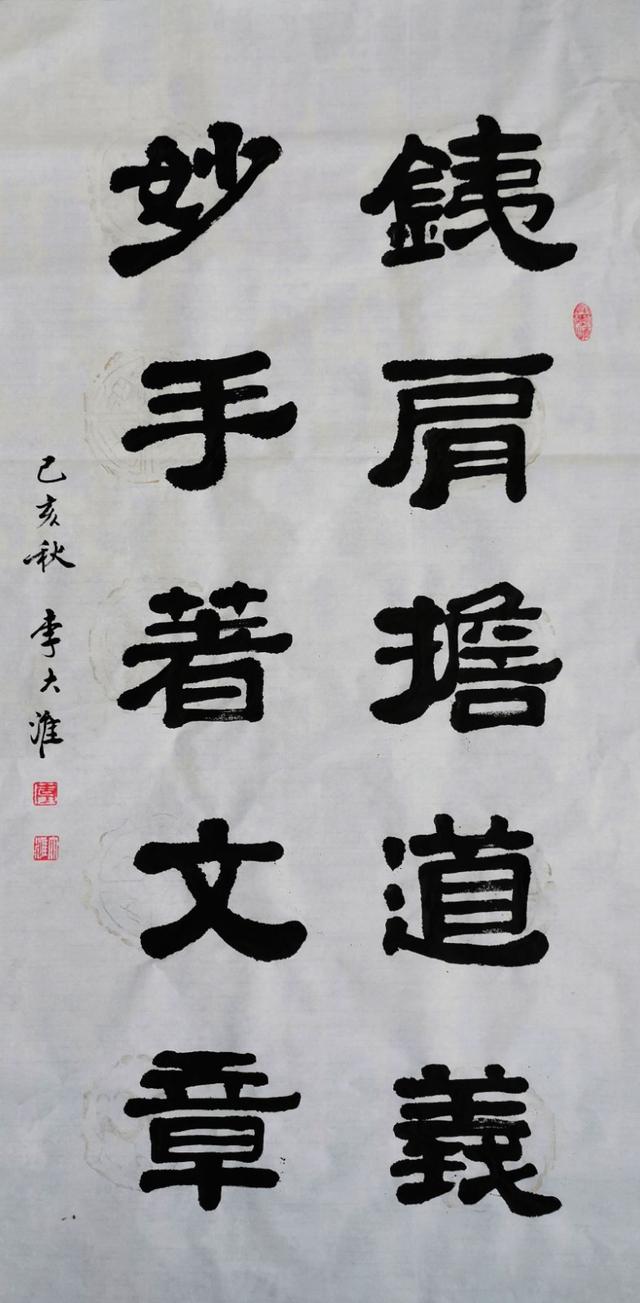 銕肩擔道義
妙手著文章
己亥秋 李大淮